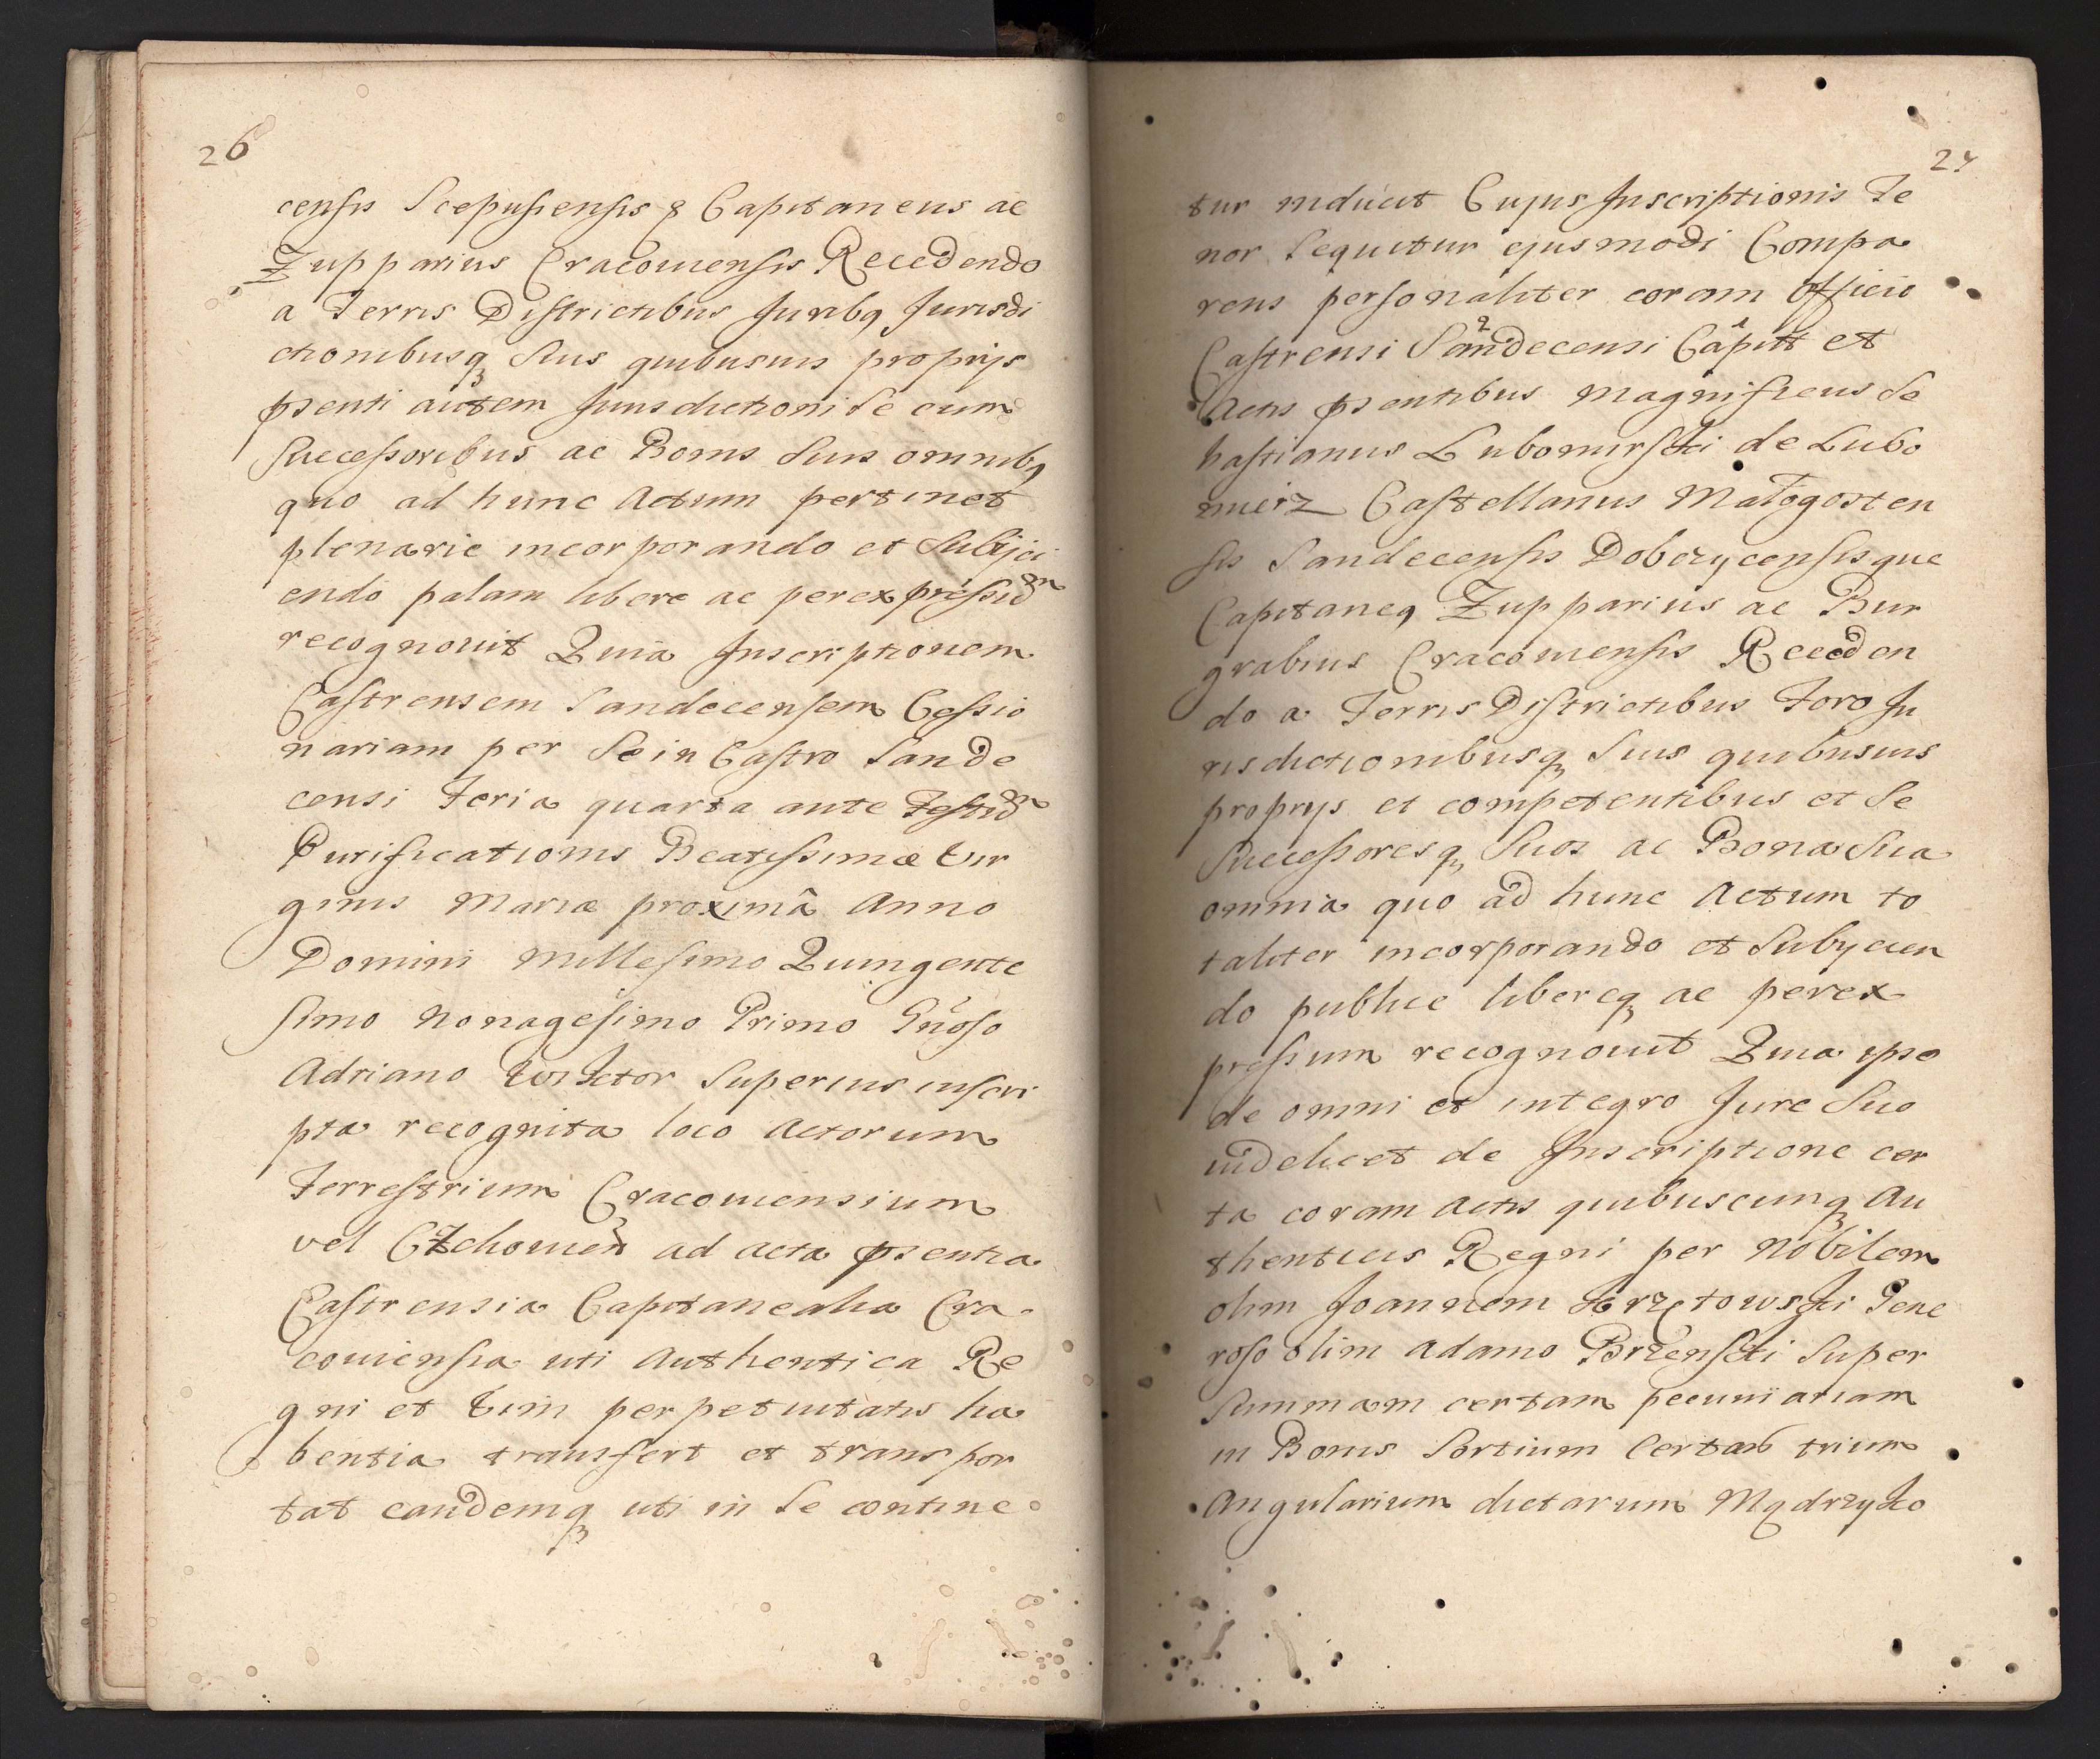 26
censis Scepusiensis & Capitaneus ac
Zupparius Cracouiensis Recedendo
a Terris Districtibus Juribq Jurisdi
ctionibusq Suis quibusuis proprijs
psenti autem Jurisdictioni Se cum
Successoribus ac Bonis Suis omnibq
quo ad hunc Actum pertinet
plenarie incorporando et Subijci
endo palam libere ac per expressum
recognouit Quia Inscriptionem
Castrensem Sandecensem Cessio
nariam per Se in Castro Sande
censi Feria quarta ante Festum
Purificationis Beatissimæ Vir
ginis Mariæ proximâ Anno
Domini Millesimo Quingente
simo Nonagesimo Primo Gnoso
Adriano Wiktor Superius inscri
pta recognita loco Actorum
Terrestrium Cracouiensium
vel Czchouien ad acta psentia
Castrensia Capitanealia Cra
couiensia uti Authentica Re
gni et Vim perpetuitatis ha
bentia transfert et transpor
tat eandemq uti in Se contine
27
tur inducit Cujus Inscriptionis Te
nor Sequitur ejusmodi Compa
rens personaliter coram Officio
Castrensi Sandecensi Capitt et
Actis psentibus Magnificus Se
bastianus Lubomirski de Lubo
mierz Castellanus Małogosten
sis Sandecensis Dobczycensisque
Capitaneq Zupparius ac Bur
grabius Cracouiensis Receden
do a Terris Districtibus Foro Ju
risdictionibusq Suis quibusuis
proprijs et competentibus et Se
Successoresq Suos ac Bona Sua
omnia quo ad hunc Actum to
taliter incorporando et Subycien
do publice libereq ac perex
pressum recognouit Quia ipse
de omni et integro Jure Suo
uidelicet de Inscriptione cer
ta coram Actis quibuscunq Au
thenticis Regni per Nobilem
olim Joannem Krzętowski Gene
roso olim Adamo Brzenski Super
Summam certam pecuniariam
in Bonis Sortium Certarb trium
Angularium dictarum Mądrzyko